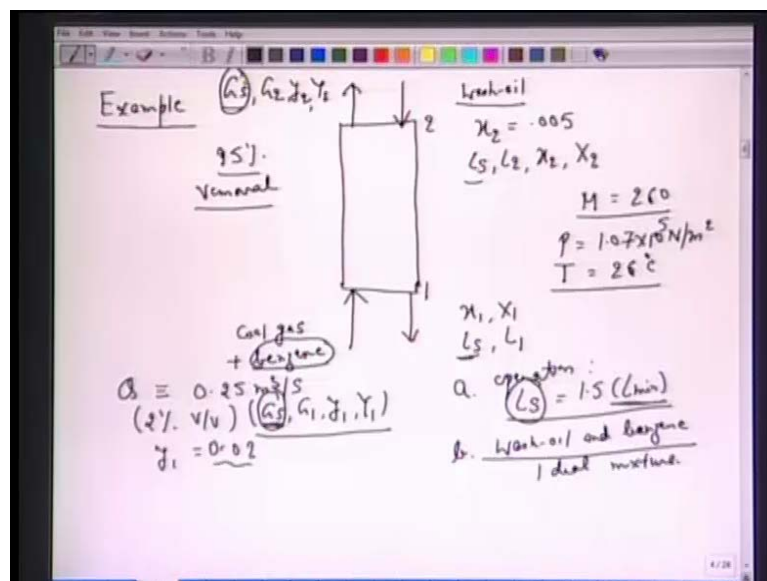 File Edit View Insert Actions Tools Help
Example
Gs, G2 y2, Y2
2
95%.
removal
Wash-oil
x2 = .005
Ls, L2, x2, X2
M = 260
P = 1.07x10^5 N/m^2
T = 26°c
1
x1, X1
Ls, L1
Coal gas
+ benzene
Q ≡ 0.25 m^3/s
(2% v/v) (Gs, G1, y1, Y1)
y1 = 0.02
a. operation :
Ls = 1.5 (Lmin)
b. Wash-oil and benzene
Ideal mixture.
4/28